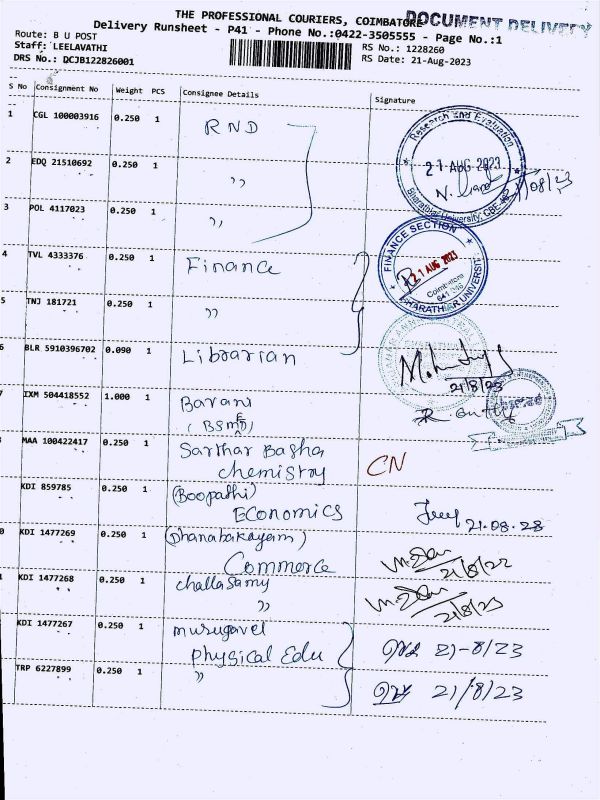 THE PROFESSIONAL COURIERS, COIMBATORE
DOCUMENT DELIVERY
Delivery Runsheet - P41 - Phone No.:0422-3505555 - Page No.:1
Route: B U POST
RS No.: 1228260
Staff: LEELAVATHI
RS Date: 21-Aug-2023
DRS No.: DCJB122826001
S No Consignment No Weight PCS Consignee Details Signature
1 CGL 100003916 0.250 1 RND
Research and Evaluation
21 AUG 2023
Bharathiar University, CBE
2 EDQ 21510692 0.250 1 ,,
3 POL 4117023 0.250 1 ,,
FINANCE SECTION
21 AUG 2023
Coimbatore
BHARATHIAR UNIVERSITY
4 TVL 4333376 0.250 1 Finance
5 TNJ 181721 0.250 1 ,,
6 BLR 5910396702 0.090 1 Librarian
21/8/23
7 IXM 504418552 1.000 1 Barani
MAA 100422417 0.250 1 Sarthar Basha
Chemistry CN
KDI 859785 0.250 1 (Boopathi)
ECONOMICS 21.08.23
0 KDI 1477269 0.250 1 (Dhanabakayam)
Commerce
1 KDI 1477268 0.250 1 Challasamy
,, 21/8/23
KDI 1477267 0.250 1 murugavel
Physical Edu 21-8/23
TRP 6227899 0.250 1 ,, 21/8/23